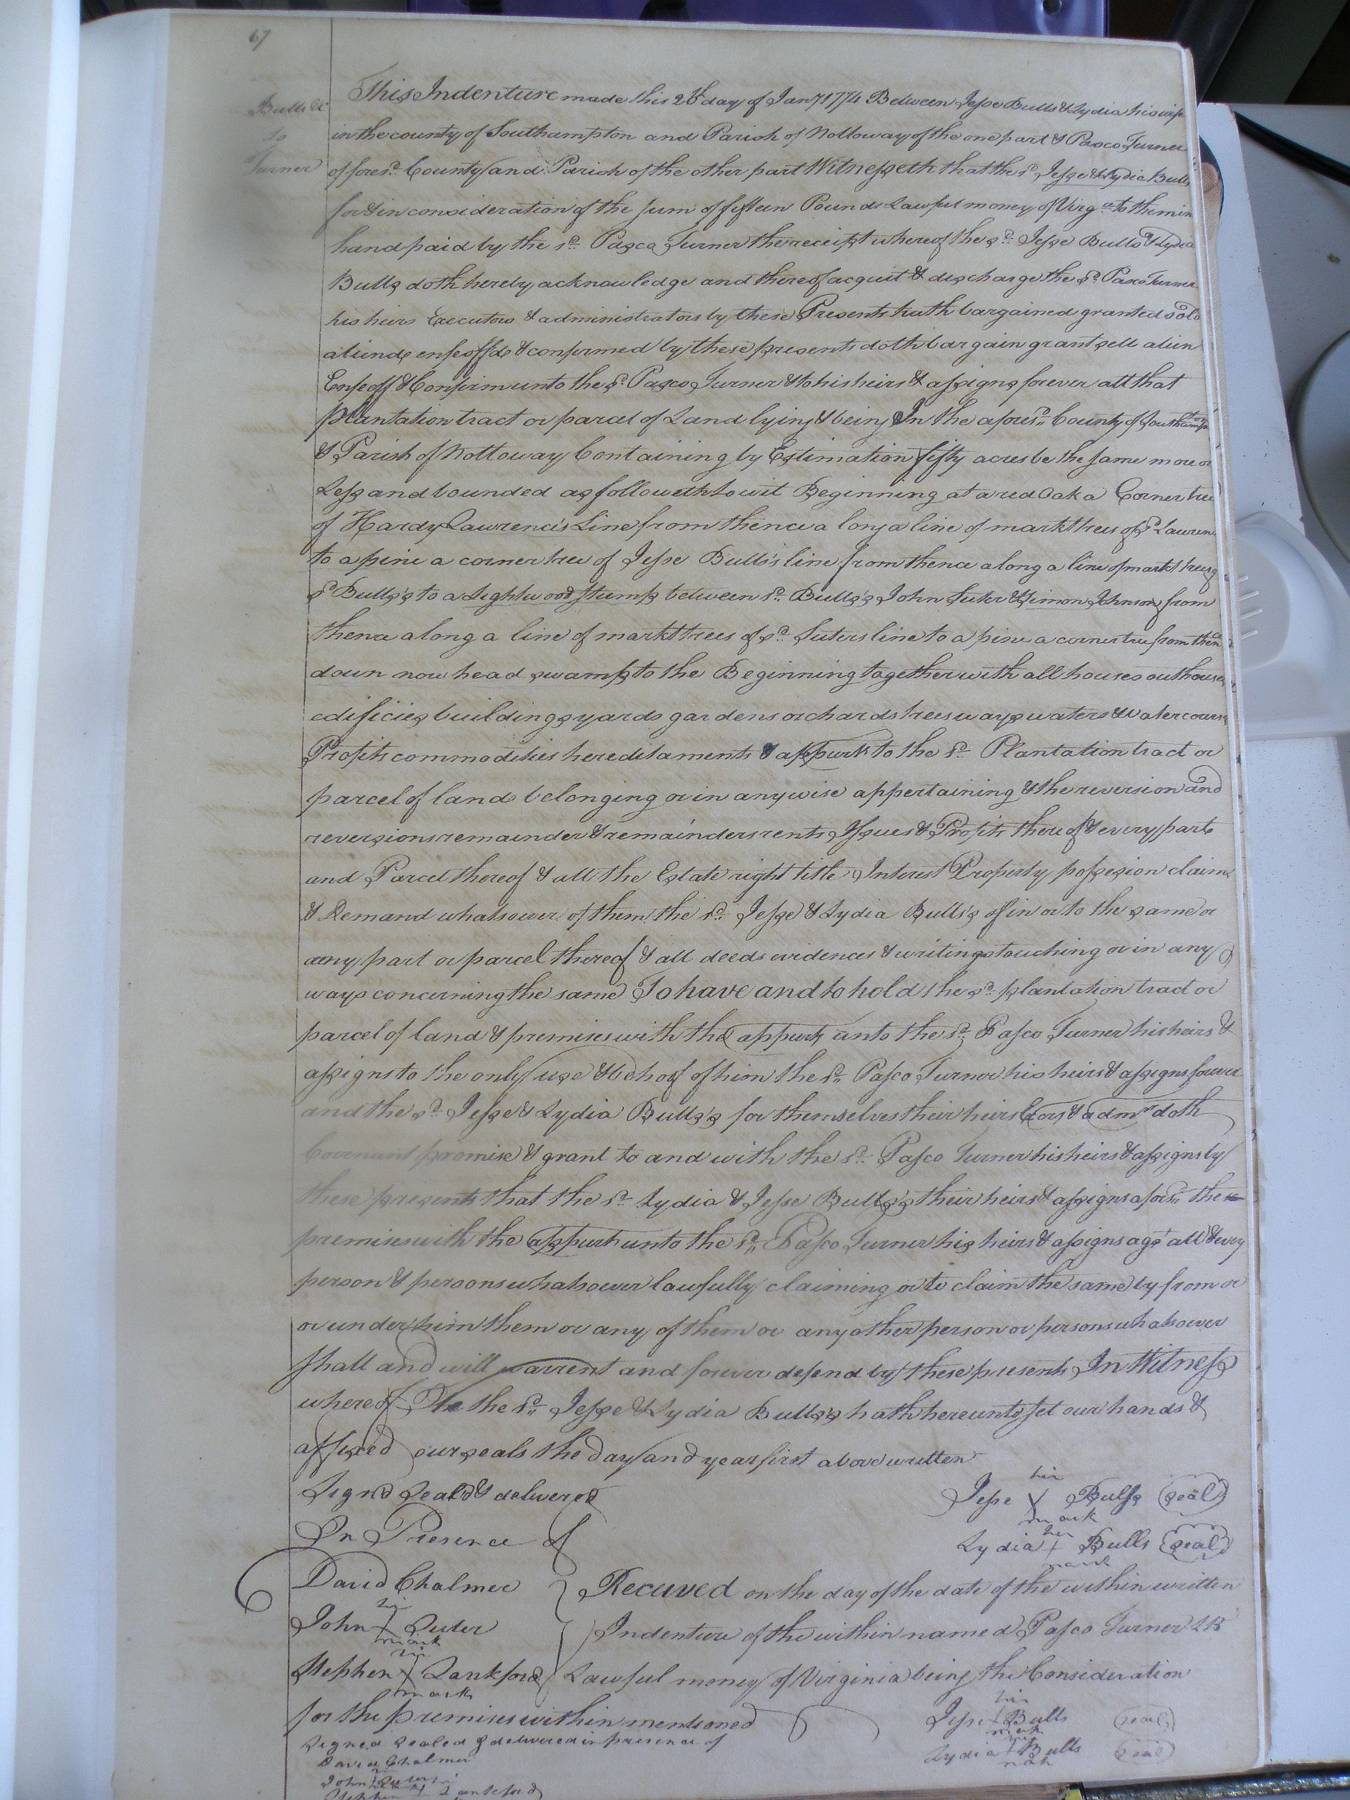 67
Bulls &c
to
Turner
This Indenture made this 26 day of Jany 1774 Between Jesse Bulls & Lydia his wife
in the county of Southampton and Parish of Nottoway of the one part & Pasco Turner
of foresd. County and Parish of the other part Witnesseth that the sd. Jesse & Lydia Bulls
for & in consideration of the sum of fifteen Pounds Lawful money of Virga. to them in
hand paid by the sd. Pasco Turner the receipt whereof the sd. Jesse Bulls & Lydia
Bulls doth hereby acknowledge and thereof acquit & discharge the sd. Pasco Turner
his heirs Executors & administrators by these Presents hath bargained granted sold
aliend enfeoffd & confirmed by these presents doth bargain grant sell alien
Enfeoff & Confirm unto the sd. Pasco Turner & to his heirs & assigns forever all that
plantation tract or parcel of Land lying & being In the aforesd. County of Southampn
& Parish of Nottoway Containing by Estimation fifty acres be the same more or
Less and bounded as followeth to wit Beginning at a red oak a Corner tree
of Hardy Lawrence's Line from thence a long a line of markt trees of sd Lawren
to a pine a corner tree of Jesse Bulls's line from thence along a line of markt trees
sd Bulls's to a Lightwood Stump between sd. Bulls's John Suter & Simon Johnson from
thence along a line of markt trees of sd. Suters line to a pine a corner tree from thence
down now head swamp to the Beginning together with all houses outhouses
edificies buildings yards gardens orchards trees ways waters & Watercourses
Profits commodities hereditaments & appurts to the sd. Plantation tract or
parcel of land belonging or in any wise appertaining & the reversion and
reversions remainder & remainders rents Issues & Profits thereof & every part
and Parcel thereof & all the Estate right title Interest Property possession claim
& Demand whatsoever of them the sd. Jesse & Lydia Bulls's of in or to the same or
any part or parcel thereof & all deeds evidences & writings touching or in any
ways concerning the same To have and to hold the sd. plantation tract or
parcel of land & premises with the appurts unto the sd. Pasco Turner his heirs &
assigns to the only use & behoof of him the sd. Pasco Turner his heirs & assigns forever
and the sd. Jesse & Lydia Bulls's for themselves their heirs Exors & admrs doth
Covenant promise & grant to and with the sd. Pasco Turner his heirs & assigns by
these presents that the sd. Lydia & Jesse Bulls's their heirs & assigns aforsd. the
premises with the appurts unto the sd. Pasco Turner his heirs & assigns agst all & every
person & persons whatsoever lawfully claiming or to claim the same by from or
or under him them or any of them or any other person or persons whatsoever
shall and will warrent and forever defend by these presents In Witness
whereof the sd. Jesse & Lydia Bulls's hath hereunto set our hands &
affixed our seals the day and year first above written
Signd Seald & delivered
his
Jesse X Bulls (seal)
mark
In Presence of
her
Lydia + Bulls (seal)
mark
David Chalmer
Received on the day of the date of the within written
his
John + Suter
mark
Indenture of the within named Pasco Turner £15
his
Stephen X Lankford
mark
Lawful money of Virginia being the Consideration
for the premises within mentioned
his
Jesse + Bulls (seal)
mark
Signed Sealed & delivered in presence of
Lydia + Bulls (seal)
mark
David Chalmer
John + Suter
Stephen + Lankford